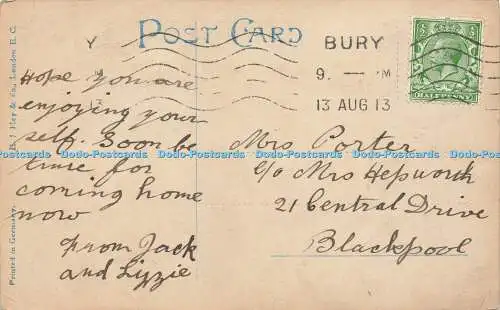 POST CARD
BURY
9. — M
13 AUG 13
Y
13
HALFPENNY
Hope you are
enjoying your
self. Soon be
time for
coming home
now
From Jack
and Lizzie
Mrs Porter
c/o Mrs Hepworth
21 Central Drive
Blackpool
Printed in Germany.
Hey & Co., London E. C.
Dodo-Postcards Dodo-Postcards Dodo-Postcards Dodo-Postcards Dodo-Postcards Dodo-Postcards